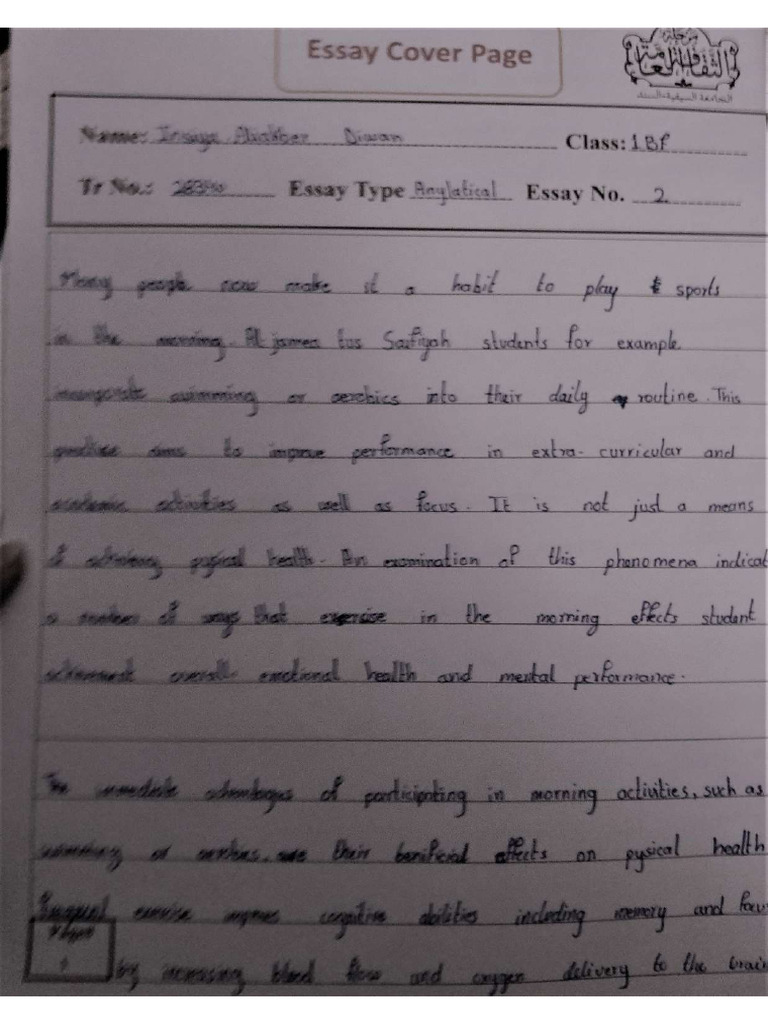 Essay Cover Page
مجلة
الثقافة العامة
الجامعة السيفية - السند
Name: Aliakber Diwan Class: 1 BF
Tr No.: Essay Type Anglatical Essay No. 2
Many people now make it a habit to play sports
in the morning. Al jamea tus Saifiyah students for example
incorporate swimming or aerobics into their daily routine. This
practice aims to improve performance in extra-curricular and
academic activities as well as focus. It is not just a means
of achieving pysical health. An examination of this phenomena indicat
a number of ways that exersise in the morning effects student
achievement overall emotional health and mental performance.
The immediate advantages of participating in morning activities, such as
swimming or aerobics, are their benificial effects on pysical health
exercise improves cognitive abilities including memory and focus
by increasing blood flow and oxygen delivery to the brain
Page
1